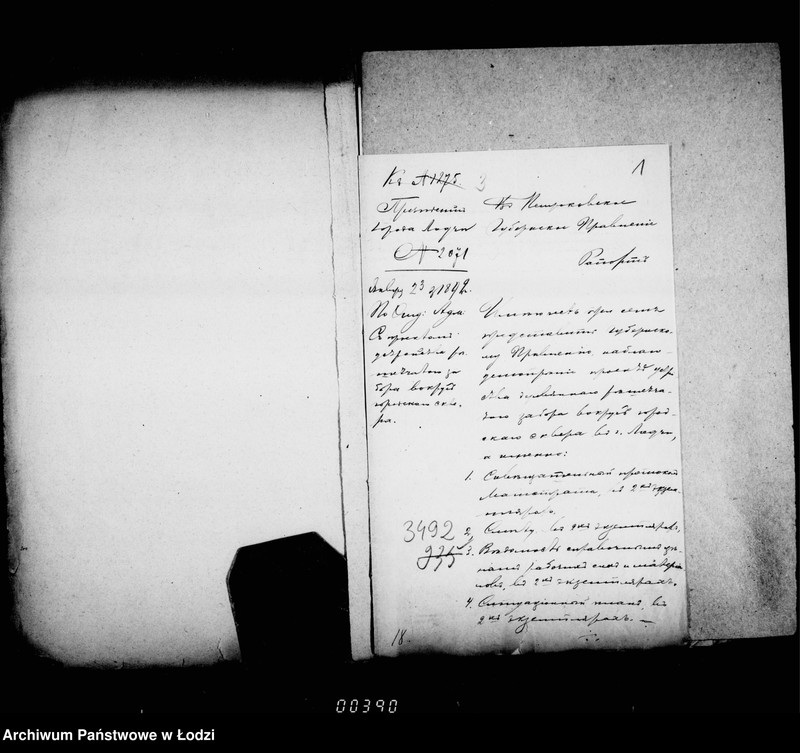 1
Къ № 1275
3
Президентъ
города Лодзи
№ 2071
Января 23 д. 1892 г.
По
Съ проектомъ
забора вокругъ
городского скве-
ра.
Въ Петроковское
Губернское Правленіе
Рапортъ
Имѣю честь при семъ
представить Губернско-
му Правленію,
проектъ устрой-
ства деревяннаго рѣшетча-
таго забора вокругъ город-
скаго сквера въ г. Лодзи,
а именно:
1. Совѣщательный протоколъ
Магистрата, въ 2хъ экзем-
плярахъ.
2. Смѣту, въ 2хъ экземплярахъ,
3. Вѣдомость справочныхъ цѣ-
намъ рабочихъ силъ и матеріа-
ловъ, въ 2хъ экземплярахъ.
4. Ситуаціонный планъ, въ
2хъ экземплярахъ. —
3492
935
18.
00390
Archiwum Państwowe w Łodzi